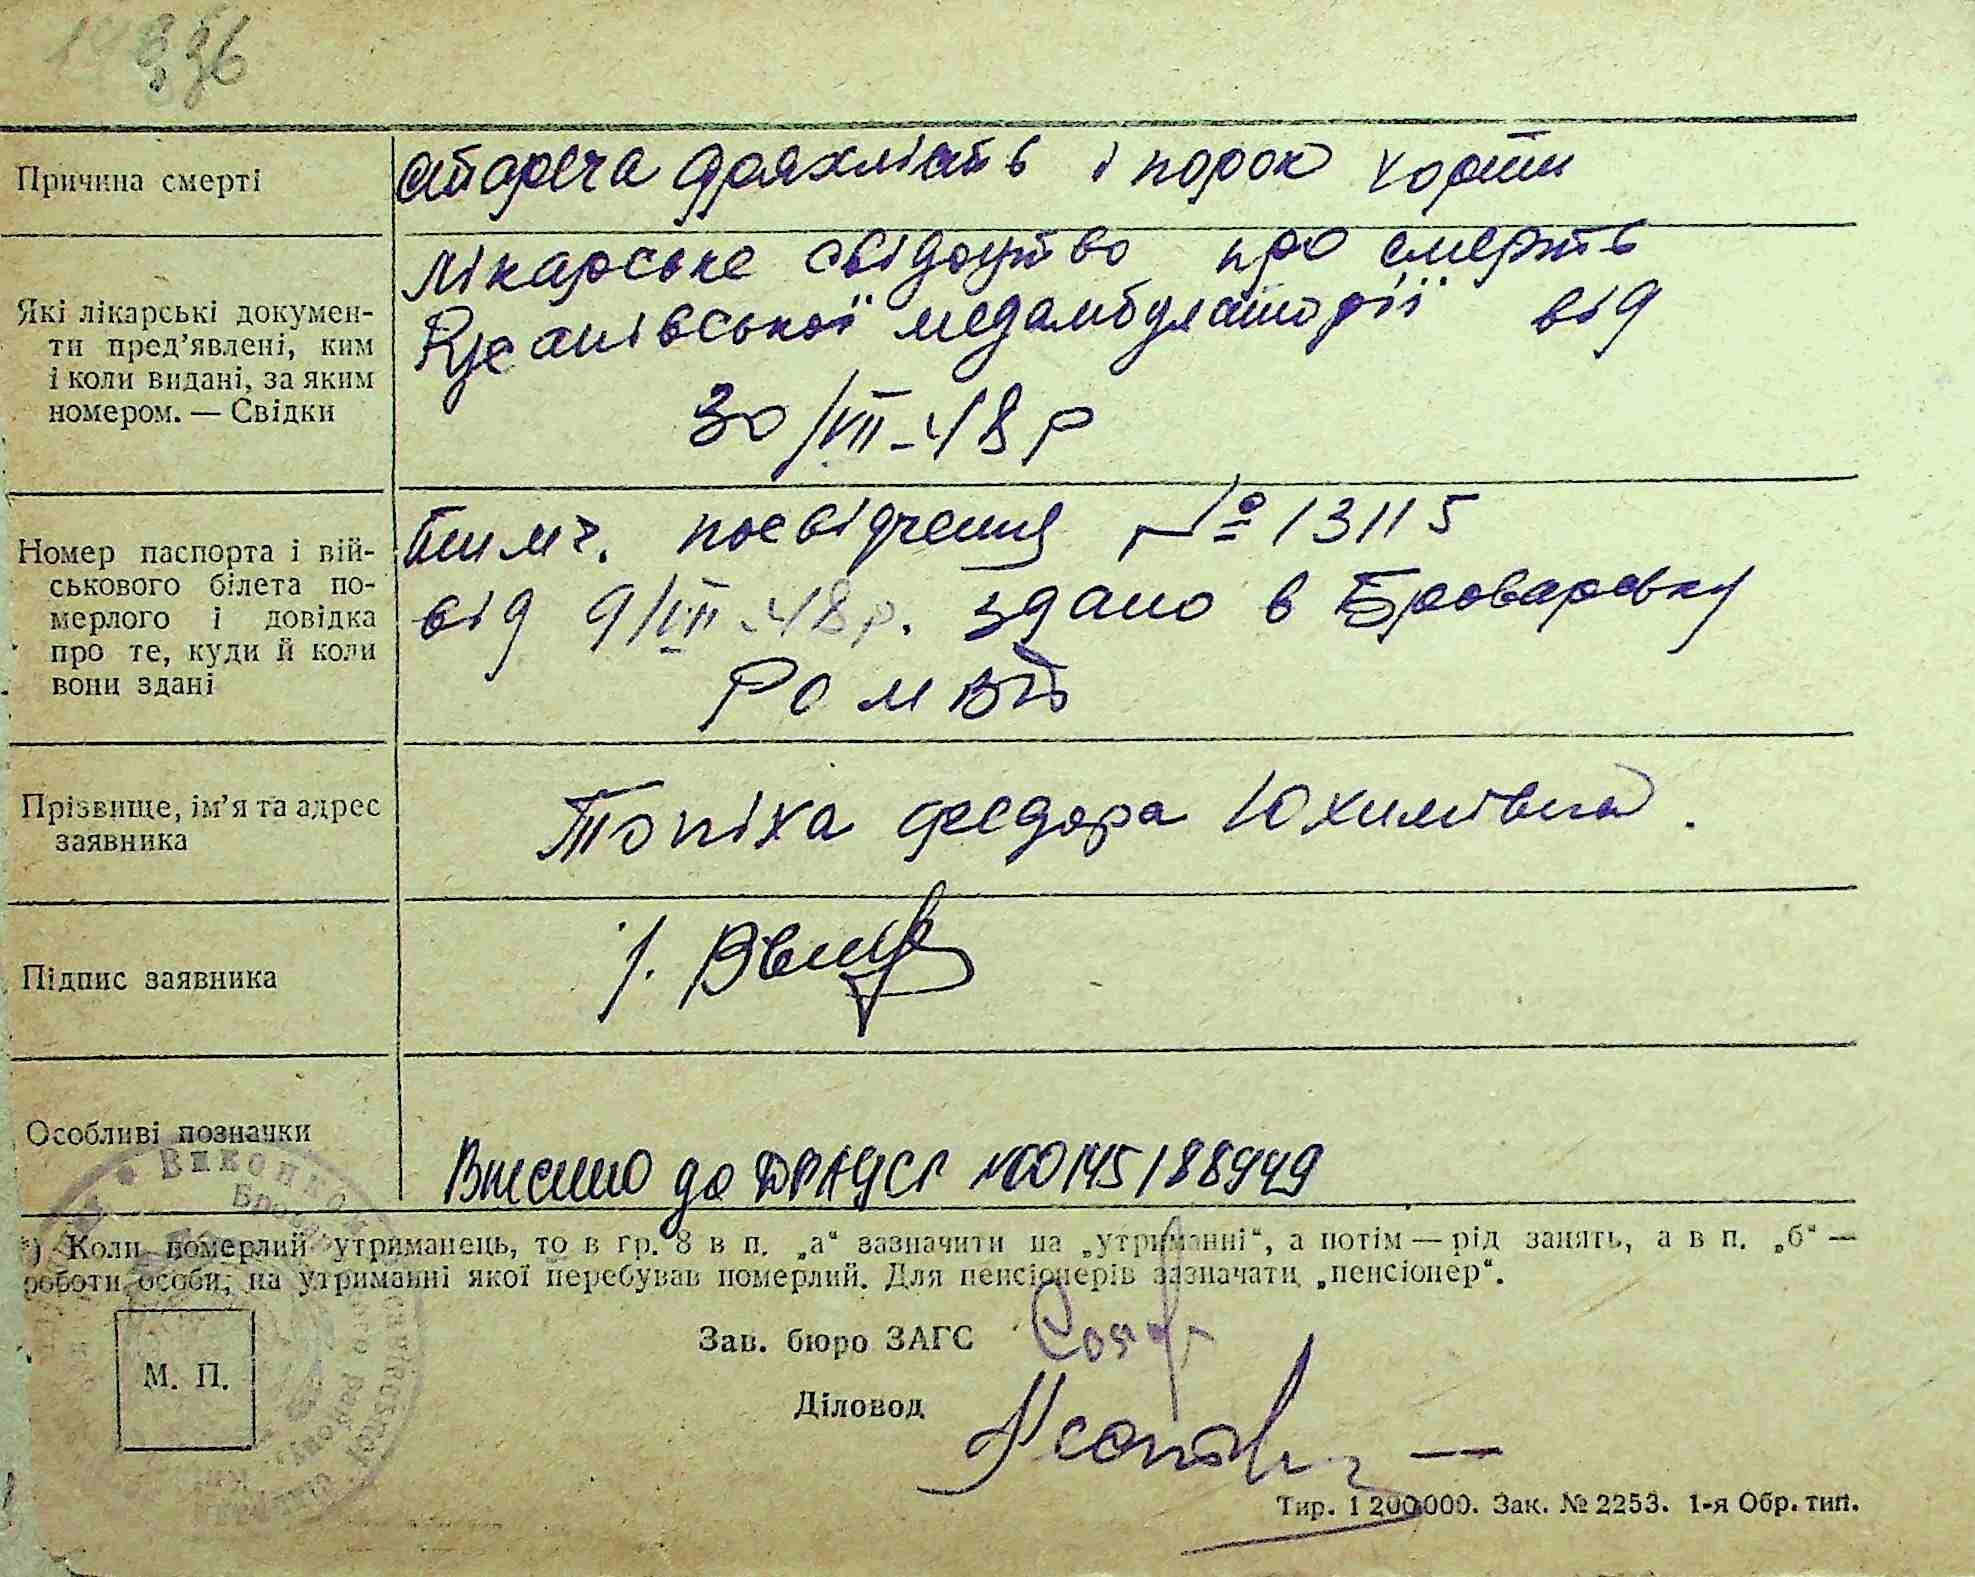 336
Причина смерті
стареча дряхлість і порок
Які лікарські докумен-
ти пред’явлені, ким
і коли видані, за яким
номером. — Свідки
Лікарське свідоцтво про смерть
медамбулаторії від
30/VII-48р
Номер паспорта і вій-
ськового білета по-
мерлого і довідка
про те, куди й коли
вони здані
тимч. посвідчення № 13115
від 9/VII-48р. здано в Броварську
Прізвище, ім’я та адрес
заявника
Топіха Федора Юхимівна.
Підпис заявника
Особливі позначки
Внесено до ДРАЦСГ №00145188949
*) Коли померлий утриманець, то в гр. 8 в п. „а“ зазначити на „утриманні“, а потім — рід занять, а в п. „б“ —
роботи особи, на утриманні якої перебував померлий. Для пенсіонерів зазначати „пенсіонер“.
Зав. бюро ЗАГС
М. П.
Діловод
Тир. 1 200 000. Зак. № 2253. 1-я Обр. тип.